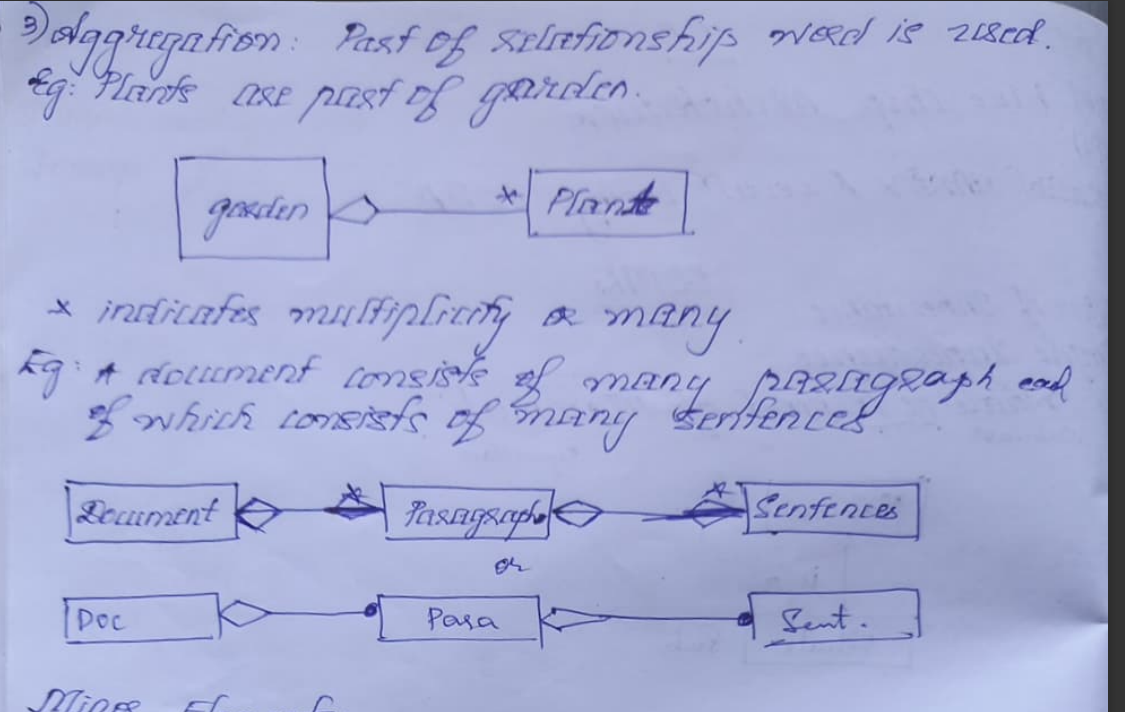 3) Aggregation: Part of relationship word is used.
Eg: Plants are part of garden.
garden * Plant
* indicates multiplicity or many
Eg: A document consists of many paragraph each
of which consists of many sentences.
Document * Paragraph * Sentences
or
Doc Para Sent.